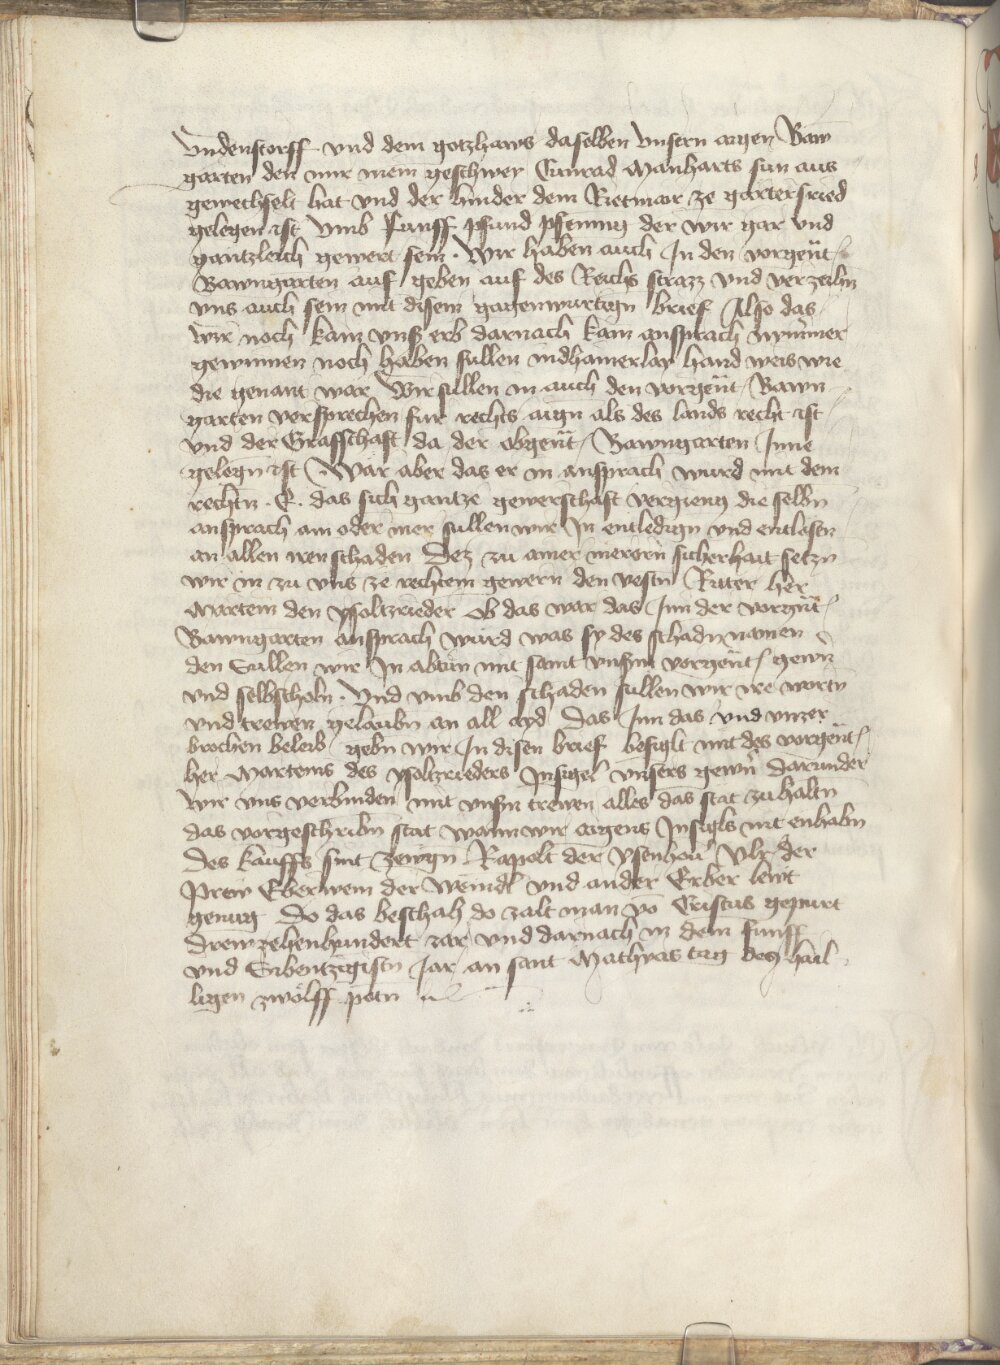 Vndenstorff vnd dem gotzhaws daselben vnsern aigen Baw
garten den mir mein geschwey Cunrad Manharts sun aus
gewechselt hat vnd der hinder dem Rietmair ze gartersried
gelegen ist Vmb funff pfund pfenning der wir gar vnd
gantzleich gewert sein . Wir haben auch In den vorgeñt
Bawngarten auf geben auf des Reichs strazz vnd verzeihn
vns auch sein mit disem gagenwurtign brief Also das
wir noch kain vnser erb darnach kain ansprach nymmer
gewinnen noch haben sullen indhainerlay hand weis wie
die genant war Wir sullen in auch den vorgeñt Bawn
garten versprechen fur rechts aign als des lands recht ist
vnd der Grafschaft da der obgeñt Bawngarten Inne
gelegn ist Wär aber das er in ansprach wurd mit dem
rechtn . E . das sich gantze gewerschaft vergieng die selbn
ansprach ain oder mer sullen wir In entledign vnd entlosen
an allen iren schaden Dez zu ainer merern sicherhait setzn
wir in zu vns ze rechtem gewern den vestn Ritter her
Martein den ysoltzrieder Ob das war das Inn der vorgñt
Bawngarten ansprach würd was sy des schadn namen
den Sullen wir In abtün mit samt vnserm vorgeñt gewern
vnd selbscholn . Vnd vmb den schaden sullen wir ire wortn
vnd trewen gelaubn an all ayd Das Inn das vnd vnzer
brochen beleib gebn wir In disen brief besiglt mit des vorgeñt
her Marteins des ysoltzrieders Insigel vnsers gewern darunder
Wir vns verbinden mit vnsern trewen alles das stat zu haltn
das vorgeschribn stat wann wir aigens Insigls nit enhabn
Des kauffs sint zewgn Rapolt der ysenhou' Vlr der
Prew Eberwein der Weindl vnd ander Erber lewt
genug Do das beschah do zalt man vo Cristus gepurt
drewzehenhundert Jar vnd darnach in dem funff
vnd Sibentzigistn Jar an sant Mathyas tag des hail
ligen zwölff potn